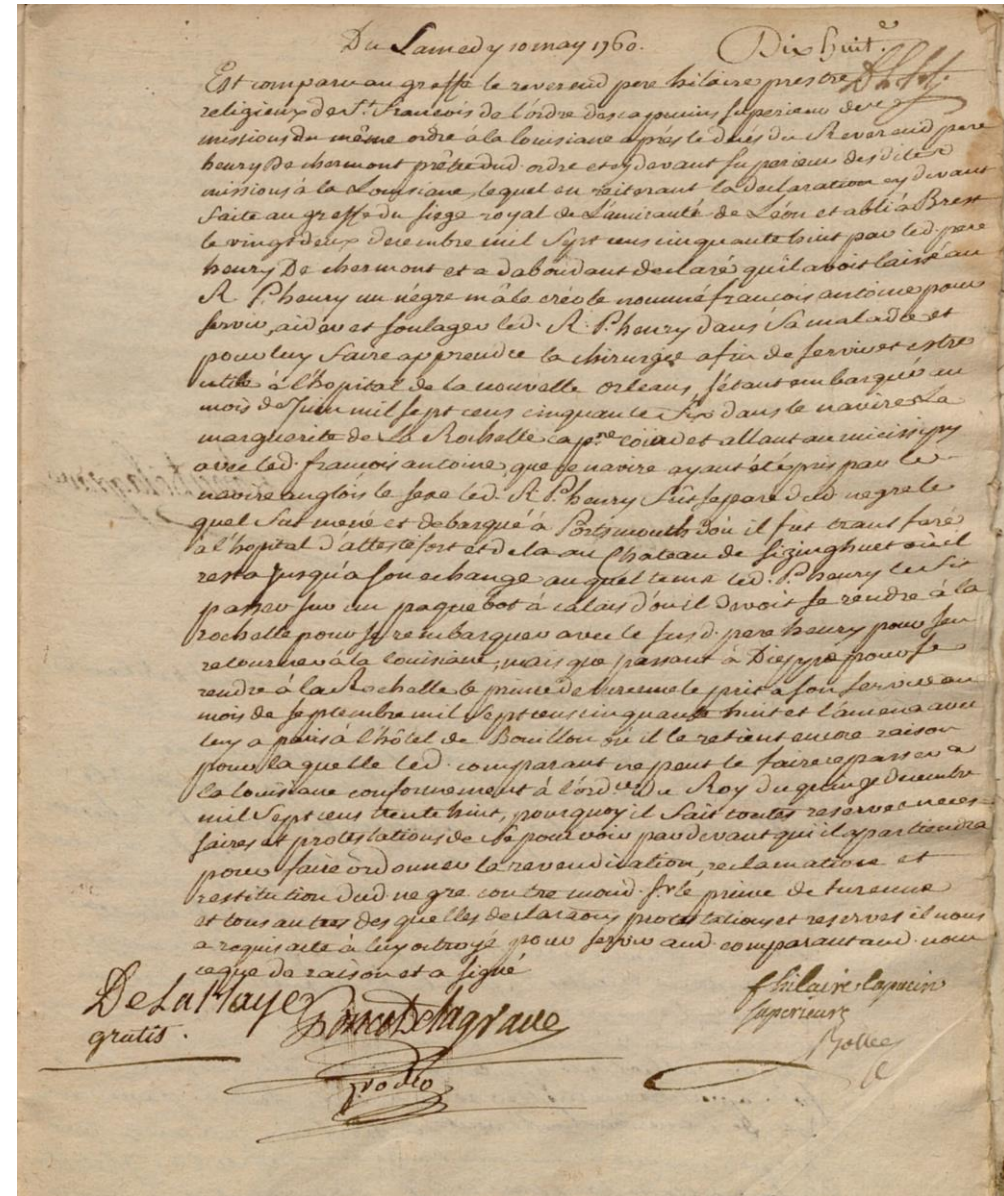 Du Samedy 10 may 1760. Dix huit.e
Est comparu au greffe le reverend pere hilaire prestre
religieux de St. francois de l'ordre des capucins superieur des
missions du même ordre à la louisiane après le decés du Reverend pere
henry De chermont prêtre dud. ordre et cy devant superieur desdites
missions à la Louisiane, lequel en reiterant la declaration cy devant
faite au greffe du siege royal de L'amirauté de Léon etabli à Brest
le vingt deux decembre mil sept cens cinquante huit par led. pere
henry De chermont et a dabondant declaré qu'il avoit laissé au
R. P. henry un négre mâle créole nommé francois antoine pour
servir, aider et soulager led. R. P. henry dans sa maladie et
pour luy faire apprendre la chirurgie afin de servir et estre
utile à l'hopital de la nouvelle orleans, s'étant embarqué au
mois de Juin mil sept cens cinquante six dans le navire La
marguerite de La Rochelle cap.ne et allant au micissipy
avec led. francois antoine, que ce navire ayant été pris par le
navire anglois le led. R. P. henry fût separé dud. negre le
quel fut mené et debarqué à Portsmouth d'où il fut transferé
à l'hopital d' et de la au Chateau de où il
resta jusqu'a son echange auquel tems led. P. henry le fit
passer sur un paquebot à calais d'ou il devoit se rendre à la
rochelle pour se rembarquer avec le susd. pere henry pour s'en
retourner à la louisiane, mais que passant à Dieppe pour se
rendre à la Rochelle le prince de turenne le prit a son service au
mois de septembre mil sept cens cinquante huit et l'amena avec
luy a paris à l'hôtel de Bouillon où il le retient encore raison
pour la quelle led. comparant ne peut le faire repasser a
la louisiane conformement à l'ord.ce du Roy du quinze decembre
mil sept cens trente huit, pourquoy il fait toutes reserves neces
saires et protestations de se pourvoir par devant qui il apartiendra
pour faire ordonner la revendication, reclamation et
restitution dud. negre contre mond. sr. le prince de turenne
et tous autres des quelles declaraons protestations et reserves il nous
a requis acte à luy octroyé pour servir aud. comparant aud. nom
ce que de raison et a signé
De La Haye
gratis.
Poncet Delagrave
f hilaire capucin
superieur